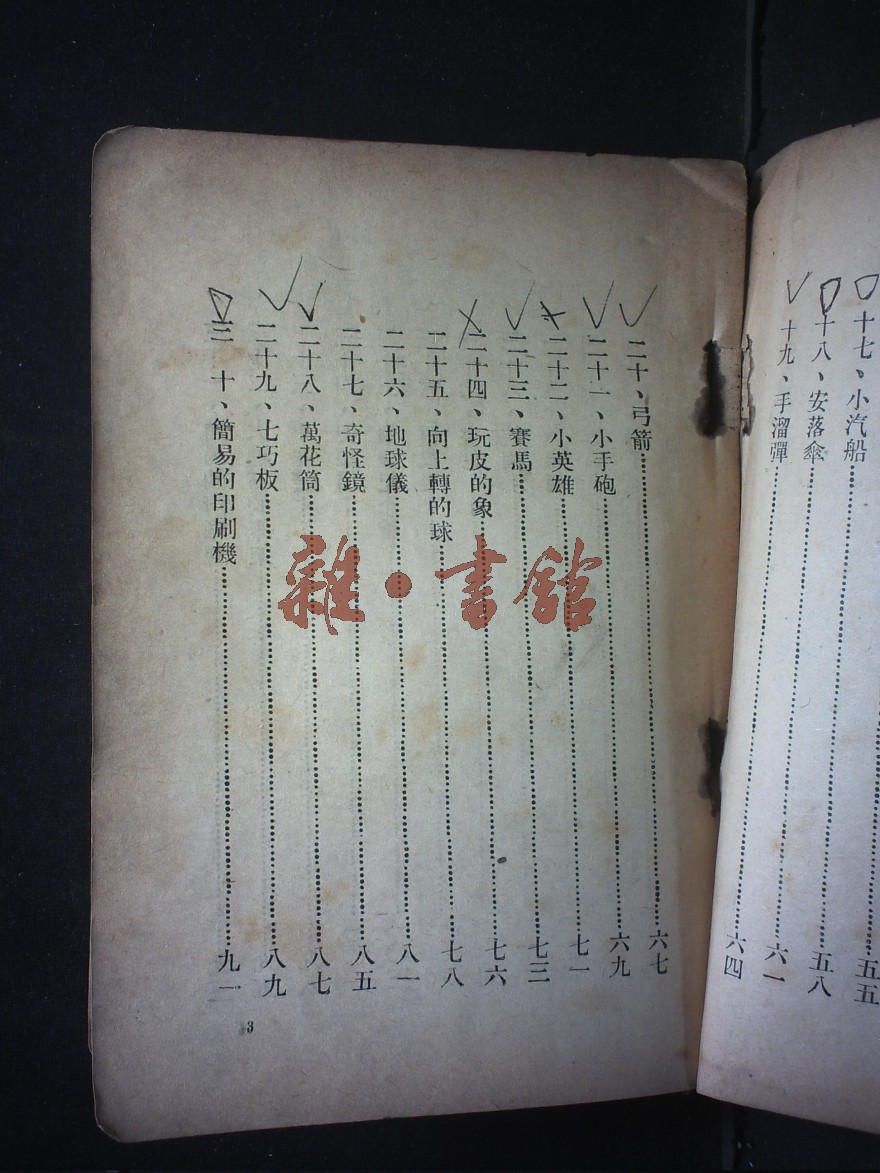 五五
十七、小汽船……五八
十八、安落傘……六一
十九、手溜彈……六四
二十、弓箭……六七
二十一、小手砲……六九
二十二、小英雄……七一
二十三、賽馬……七三
二十四、玩皮的象……七六
二十五、向上轉的球……七八
二十六、地球儀……八一
二十七、奇怪鏡……八五
二十八、萬花筒……八七
二十九、七巧板……八九
三十、簡易的印刷機……九一
3
雜·書館